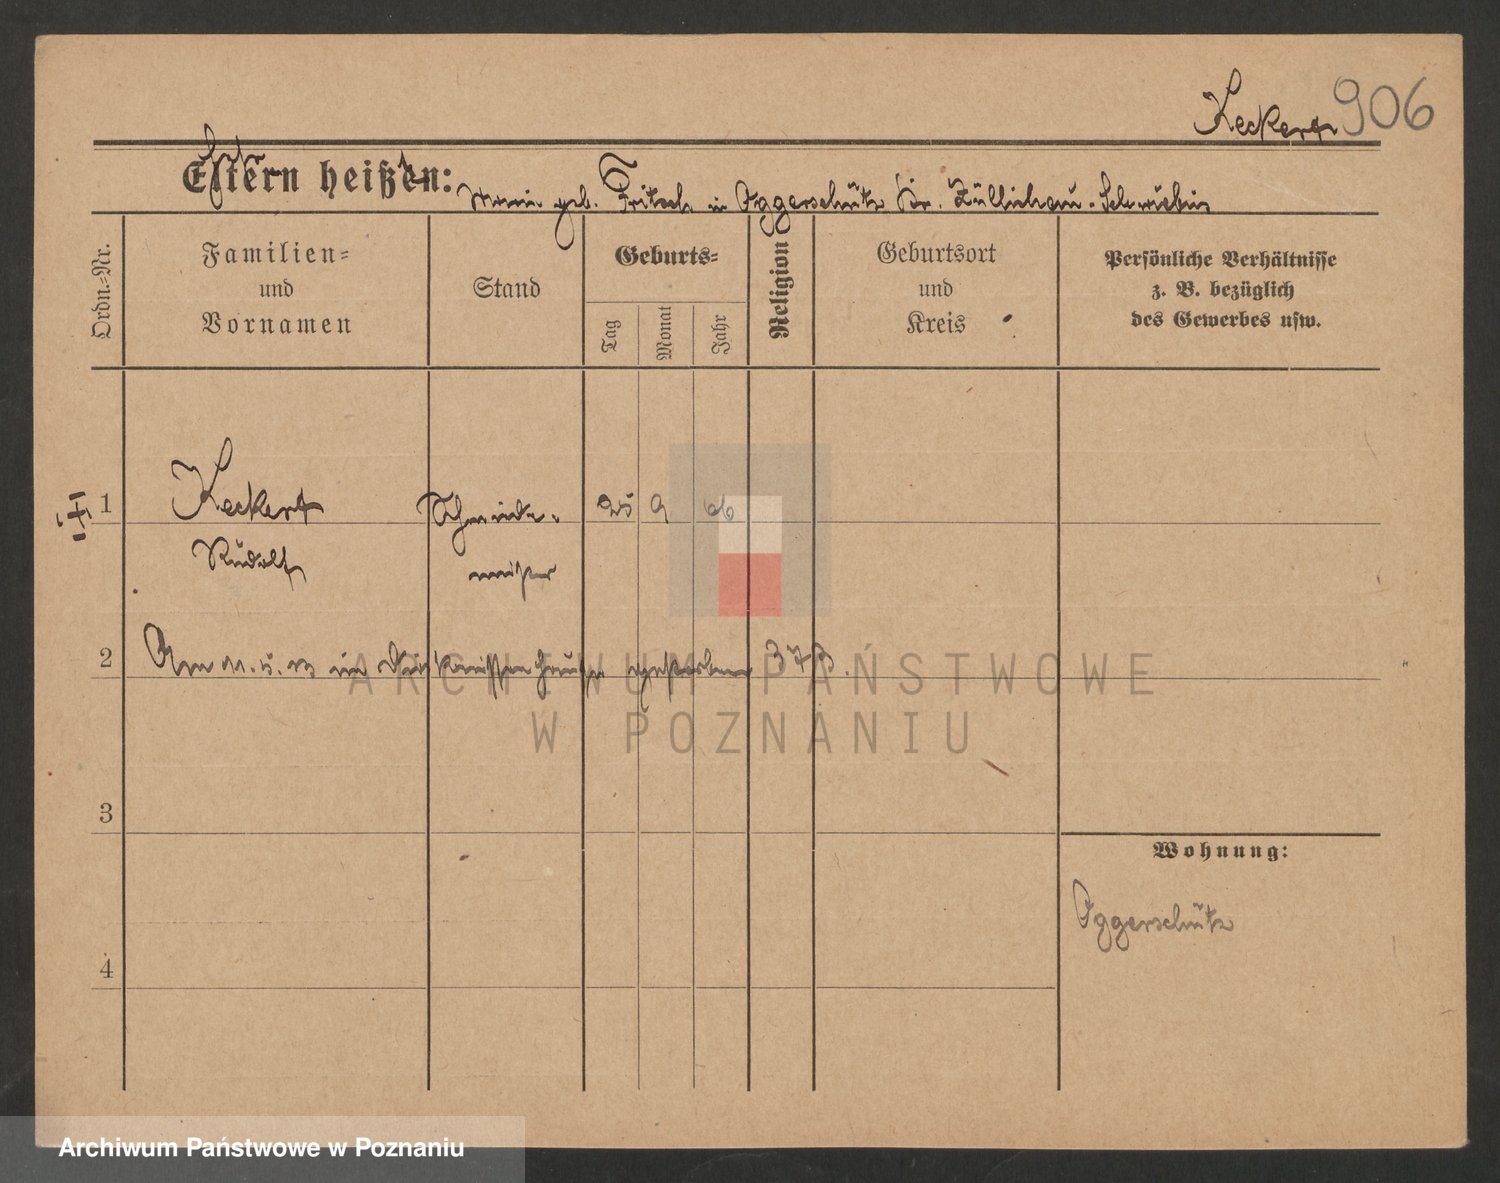 Keckert 906
Eltern heißen:
geb. Fritsch in Oggerschütz Kr. Züllichau-Schwiebus
Ordn.-Nr.
Familien-
und
Vornamen
Stand
Geburts-
Tag
Monat
Jahr
Religion
Geburtsort
und
Kreis
Persönliche Verhältnisse
z. B. bezüglich
des Gewerbes usw.
1
Keckert Schmiede- 25 9 66
Rudolf meister
2
Am 11. 5. 13 im Diakonissenhause gestorben
ARCHIWUM PAŃSTWOWE
W POZNANIU
3
Wohnung:
Oggerschütz
4
Archiwum Państwowe w Poznaniu